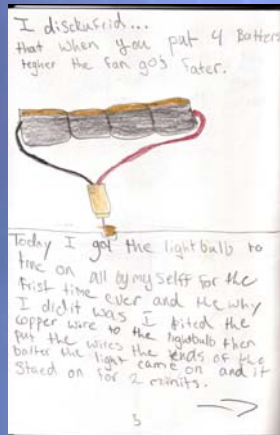 I disckufrid...
that when you put 4 Batters
tegher the fan gos fater.
Today I got the lightbulb to
trne on all by my selff for the
frist time ever and the why
I did it was I kited the
copper wire to the lightbulb then
put the wires the ends of the
batter the light came on and it
staed on for 2 minits.
5